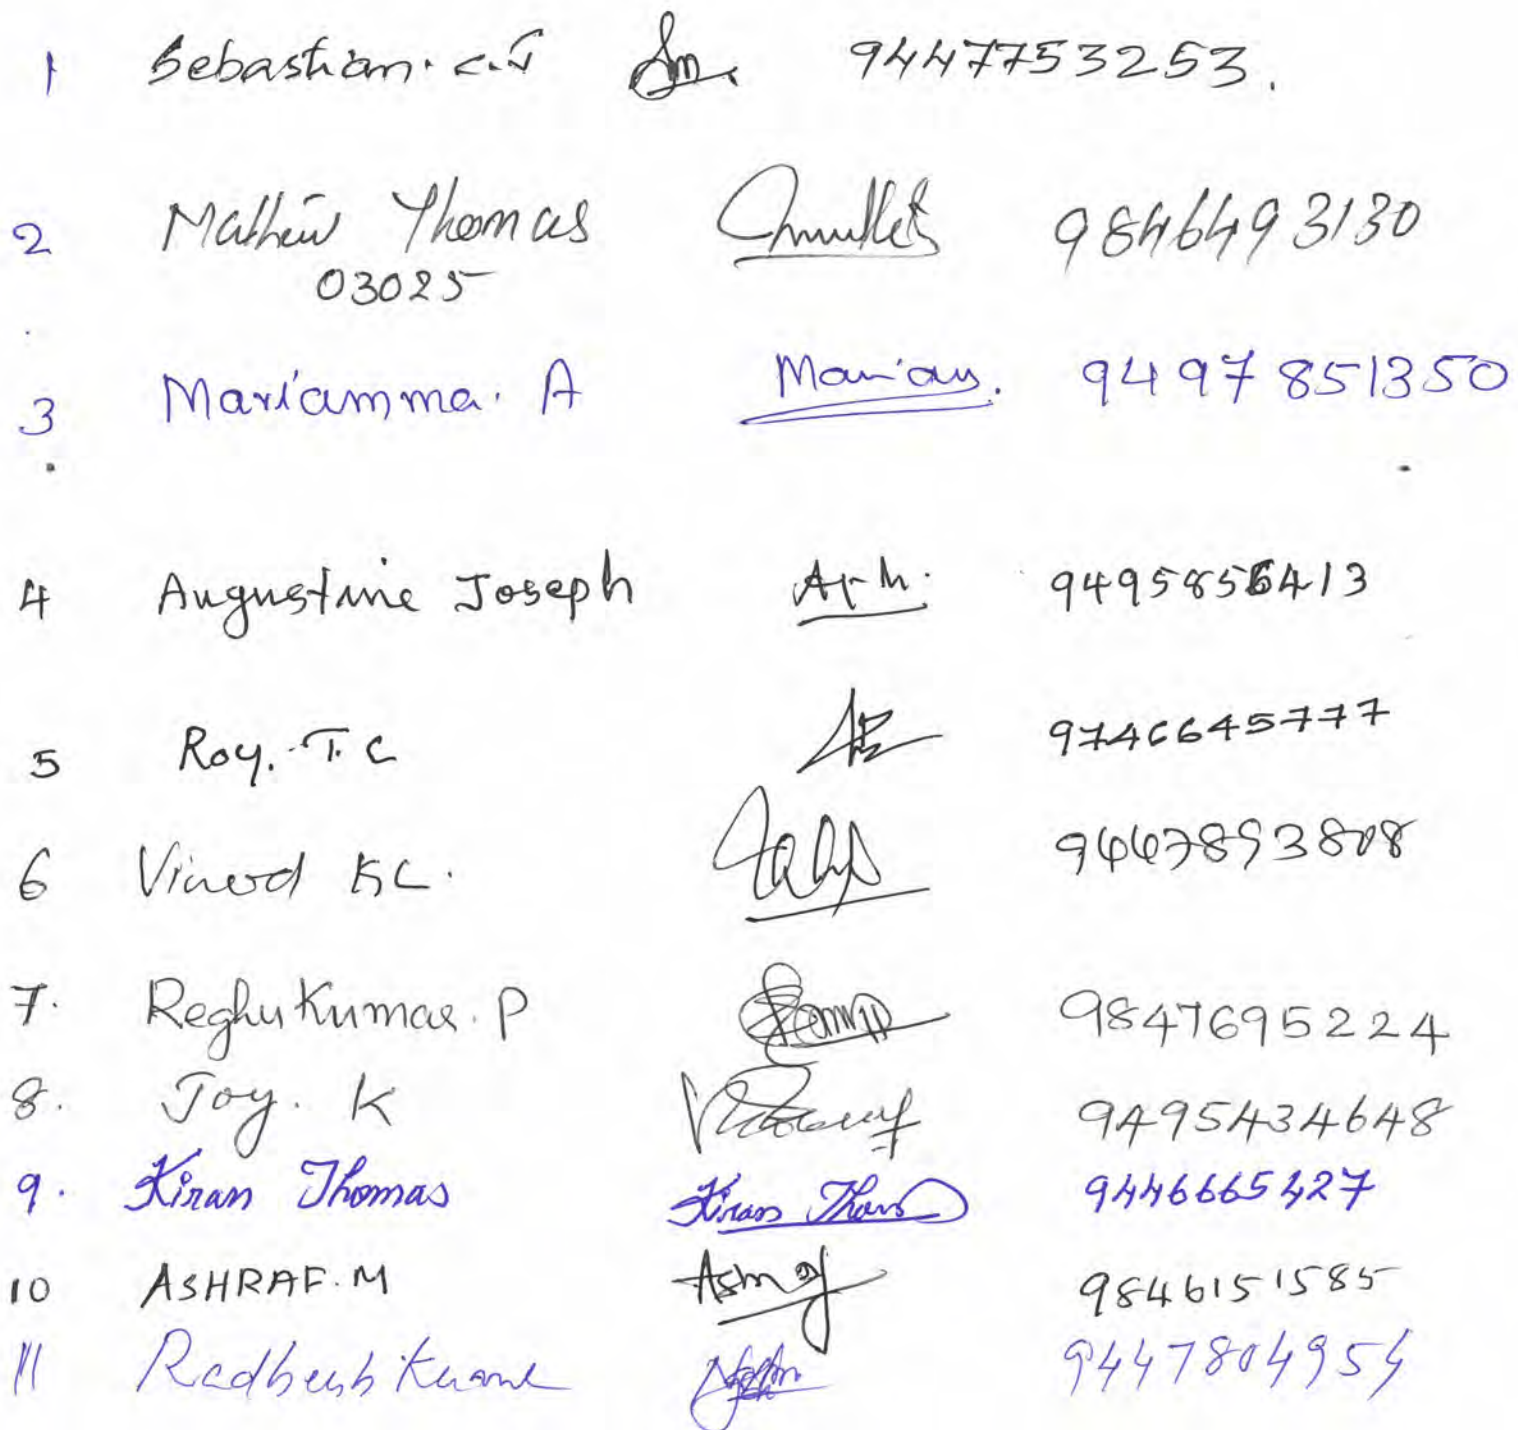 1 Sebastian. C.J 9447753253.
2 Mathew Thomas 9846493130
03025
3 Mariamma. A 9497851350
4 Augustine Joseph 9495856413
5 Roy. T. C 9746645777
6 Vinod K.C. 9447893808
7. Reghu Kumar. P 9847695224
8. Joy. K 9495434648
9. Kiran Thomas Kiran Thomas 9446665427
10 ASHRAF. M 9846151585
11 9447804954